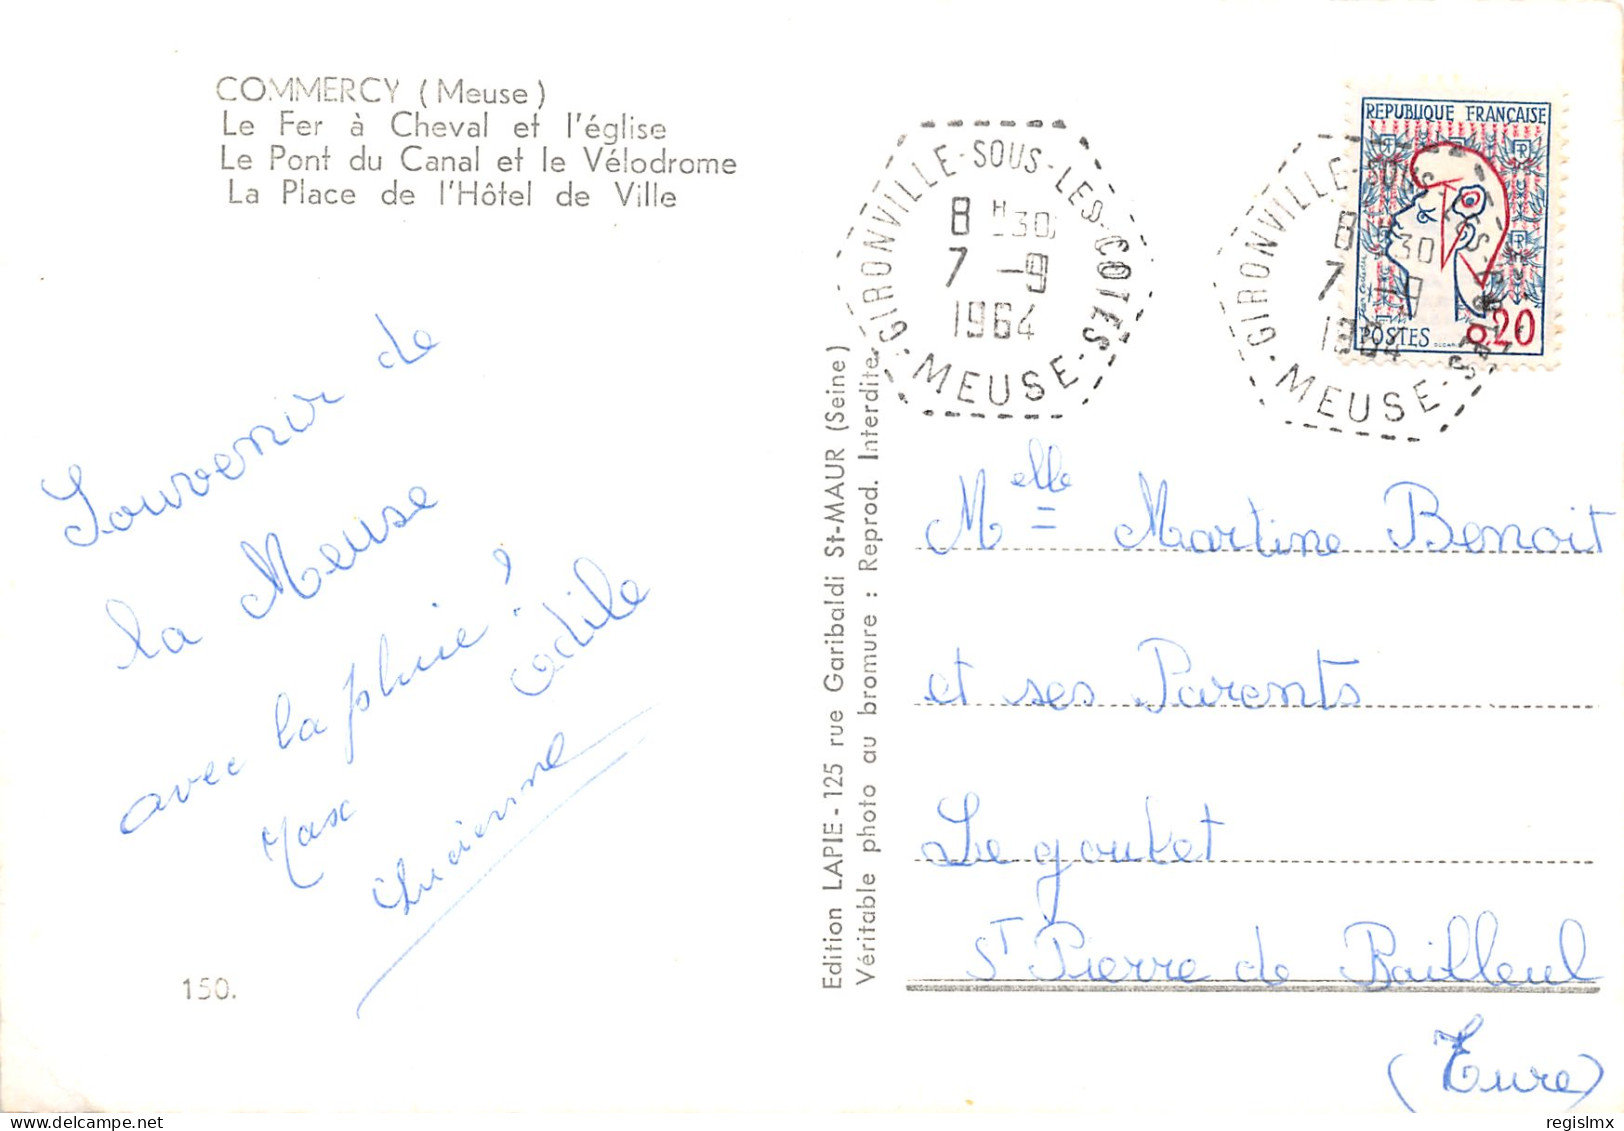 COMMERCY (Meuse)
Le Fer à Cheval et l'église
Le Pont du Canal et le Vélodrome
La Place de l'Hôtel de Ville
Souvenir de
la Meuse
avec la pluie !
Max
Odile
Lucienne
150.
Edition LAPIE - 125 rue Garibaldi St-MAUR (Seine)
Véritable photo au bromure : Reprod. Interdite.
GIRONVILLE-SOUS-LES-COTES
8 H30
7 -9
1964
MEUSE
GIRONVILLE-SOUS-LES-COTES
8 H30
7 -9
1964
MEUSE
REPUBLIQUE FRANÇAISE
POSTES
0,20
Melle Martine Benoit
et ses Parents
Le goulet
St Pierre de Bailleul
(Eure)
regislmx